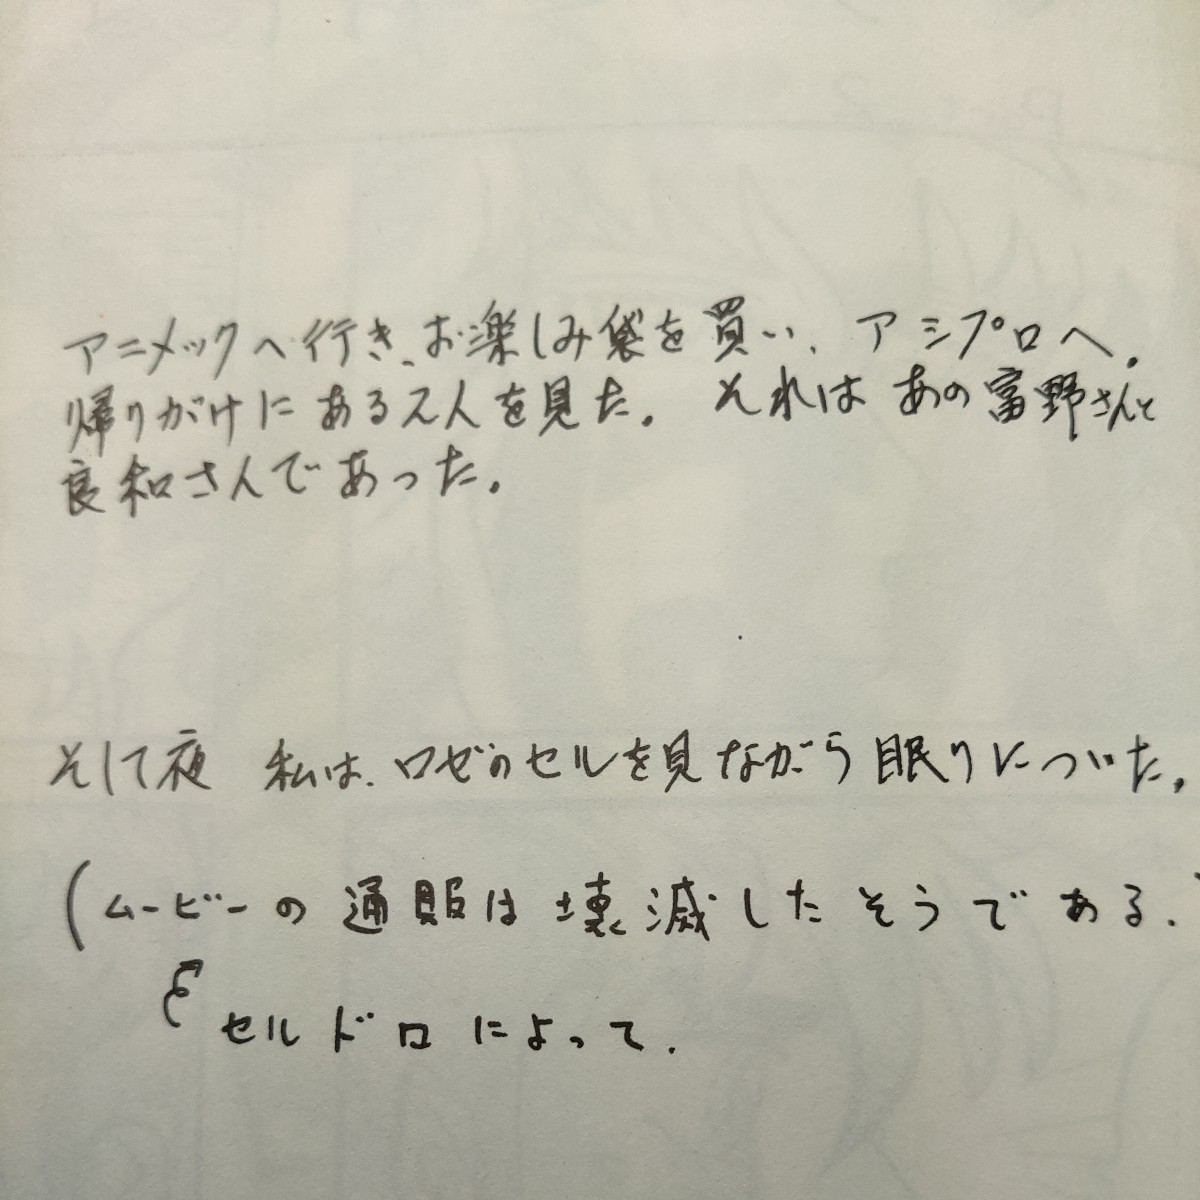 アニメックへ行き、お楽しみ袋を買い、アシプロへ。
帰りがけにある2人を見た。それはあの富野さんと
良和さんであった。
そして夜 私は、ロゼのセルを見ながら眠りについた。
(ムービーの通販は壊滅したそうである。
セルドロによって.